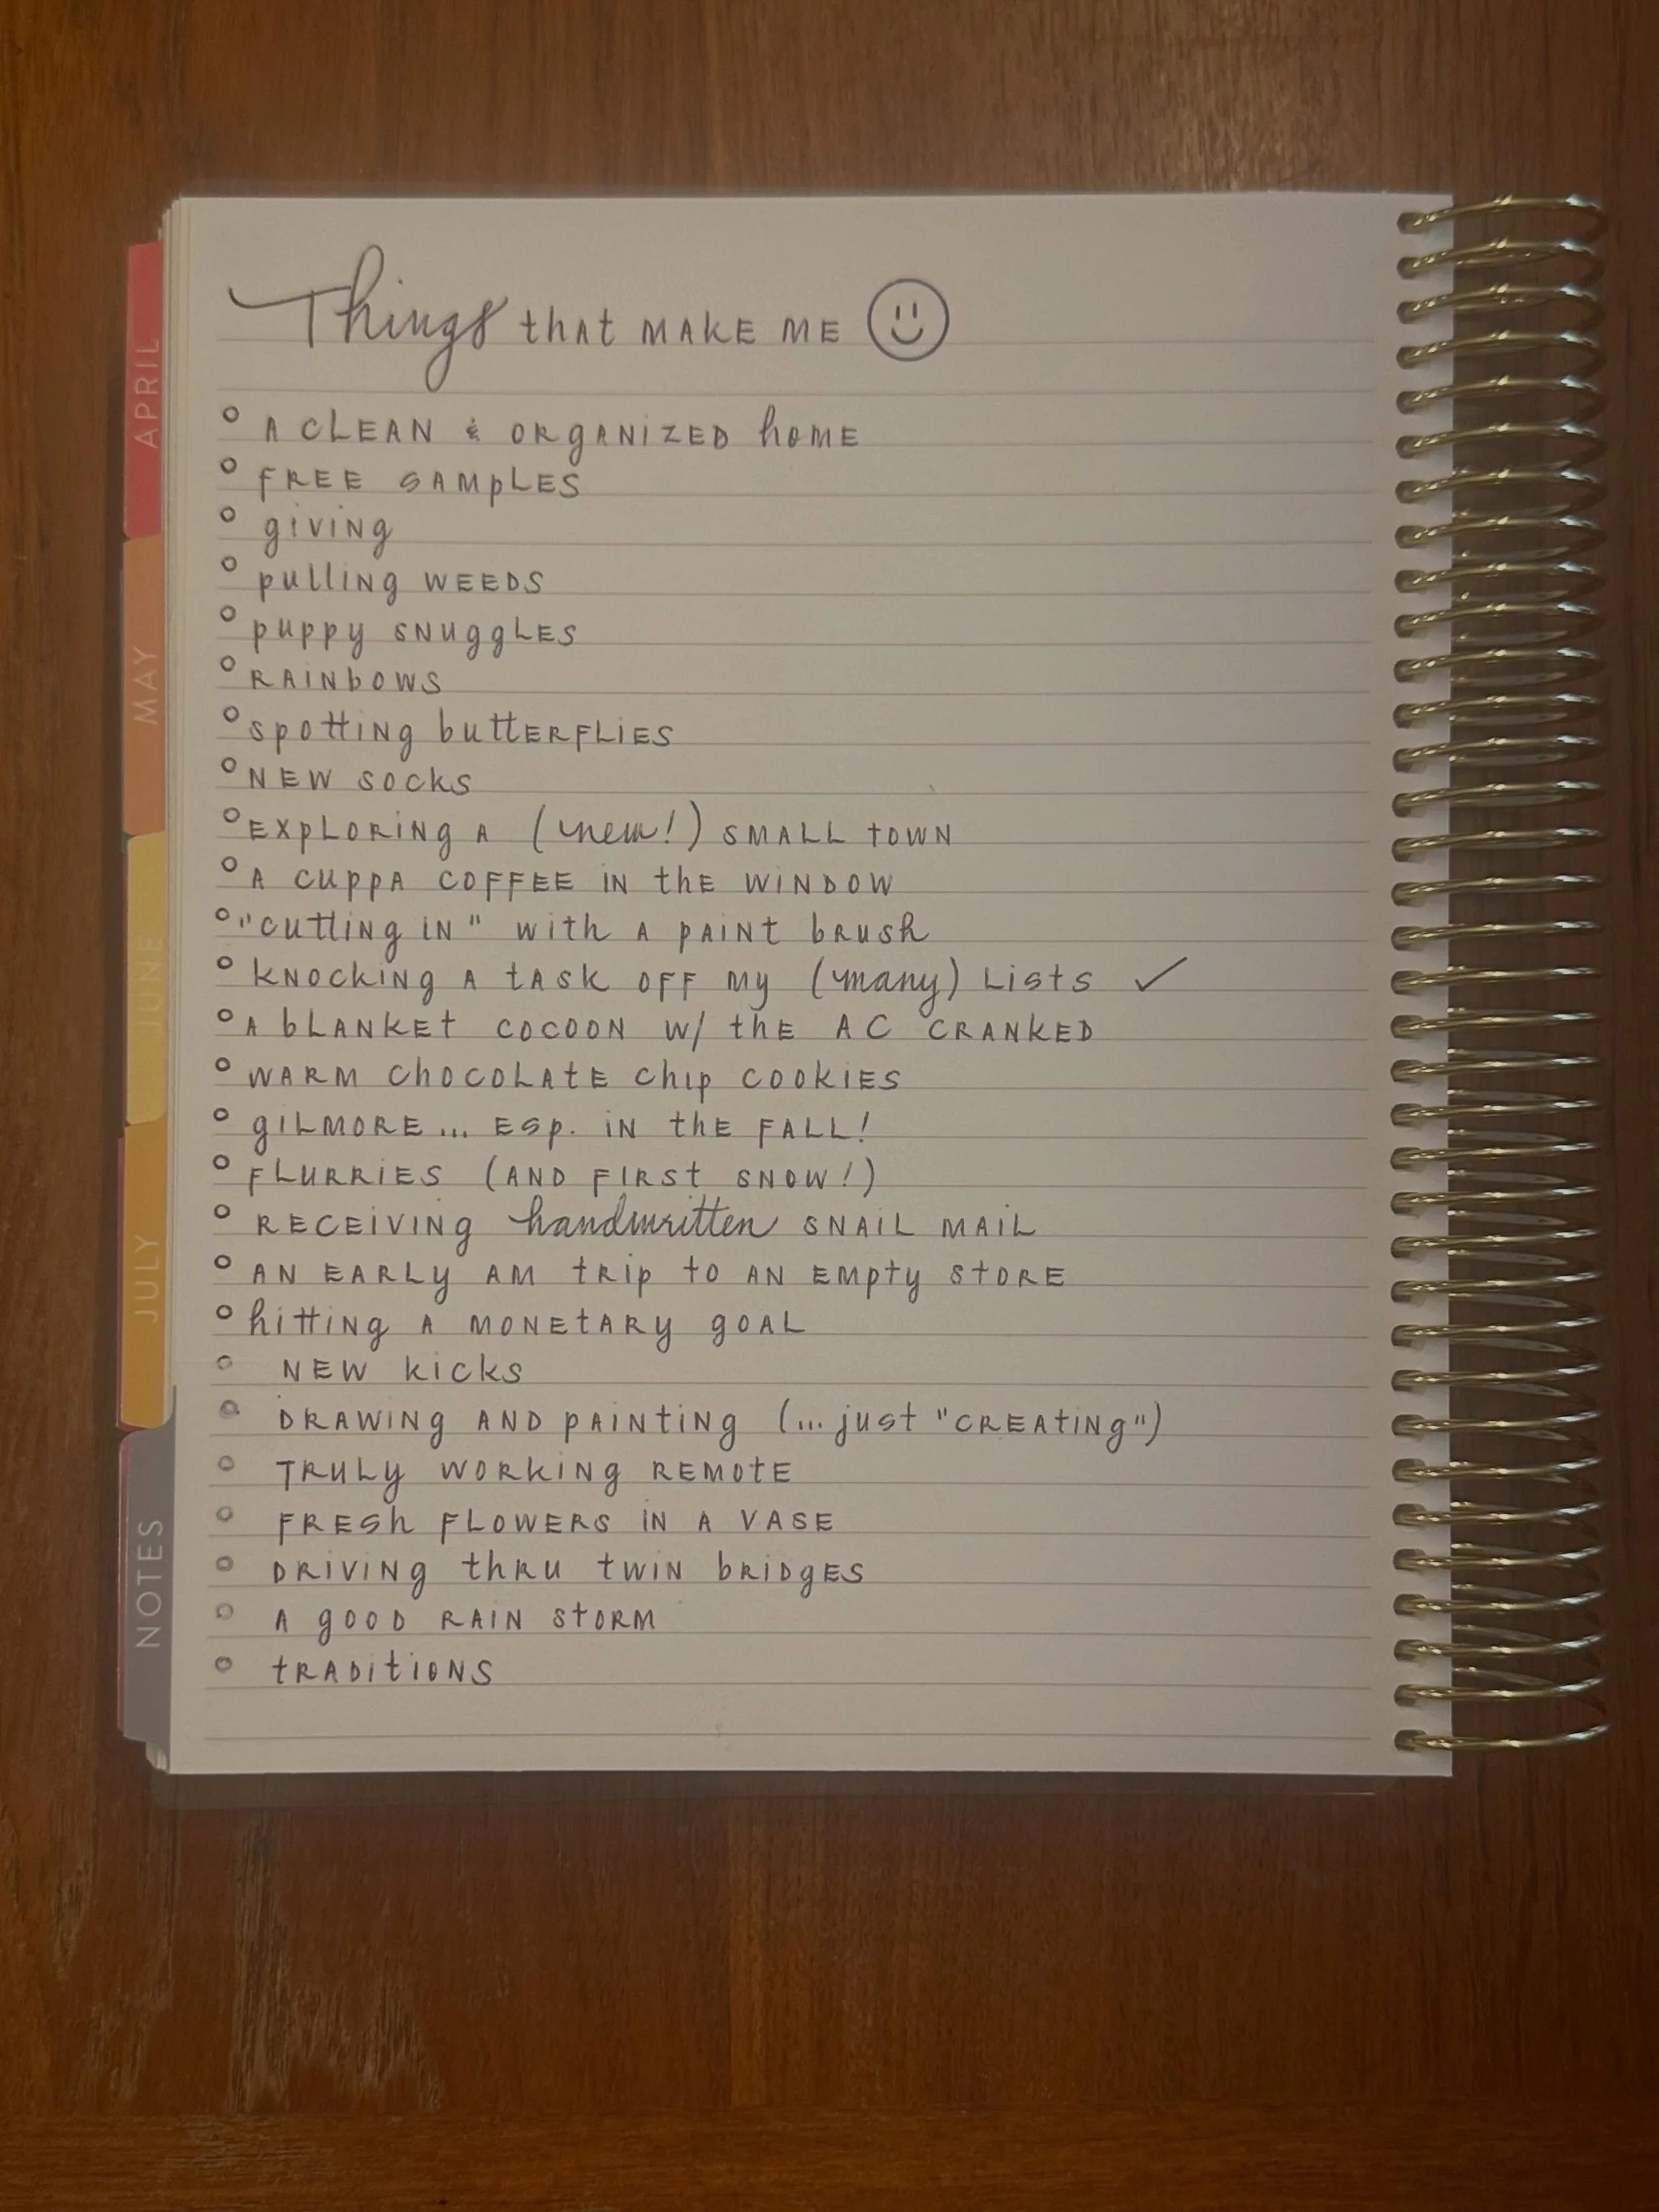 Things that MAKE ME
A CLEAN & ORGANIZED hOME
FREE SAMPLES
giving
pulling WEEDS
puppy SNuggLES
RAINbOWS
spotting buttERFLiES
NEW socks
EXpLORiNg A (new!) SMALL tOWN
A CUppA COFFEE IN thE WINDOW
"cutting IN" with A pAINt bRush
KNOCKiNg A tASK OFF My (many) Lists ✓
A bLANKEt COCOON W/ thE AC CRANKED
WARM ChOCOLAtE Chip COOKIES
giLMORE... ESp. iN thE FALL!
FLURRiES (AND FIRSt SNOW!)
RECEiViNg handwritten SNAiL MAiL
AN EARLy AM tRip to AN EMpty StORE
hitting A MONEtARy gOAL
NEW kicks
DRAWiNg AND pAiNtiNg (... just "CREAtiNg")
TRULy WORkiNg REMOtE
FRESh FLOWERS IN A VASE
DRiViNg thRu tWIN bRidgES
A gOOD RAIN StORM
tRADitiONS
APRIL
MAY
JUNE
JULY
NOTES